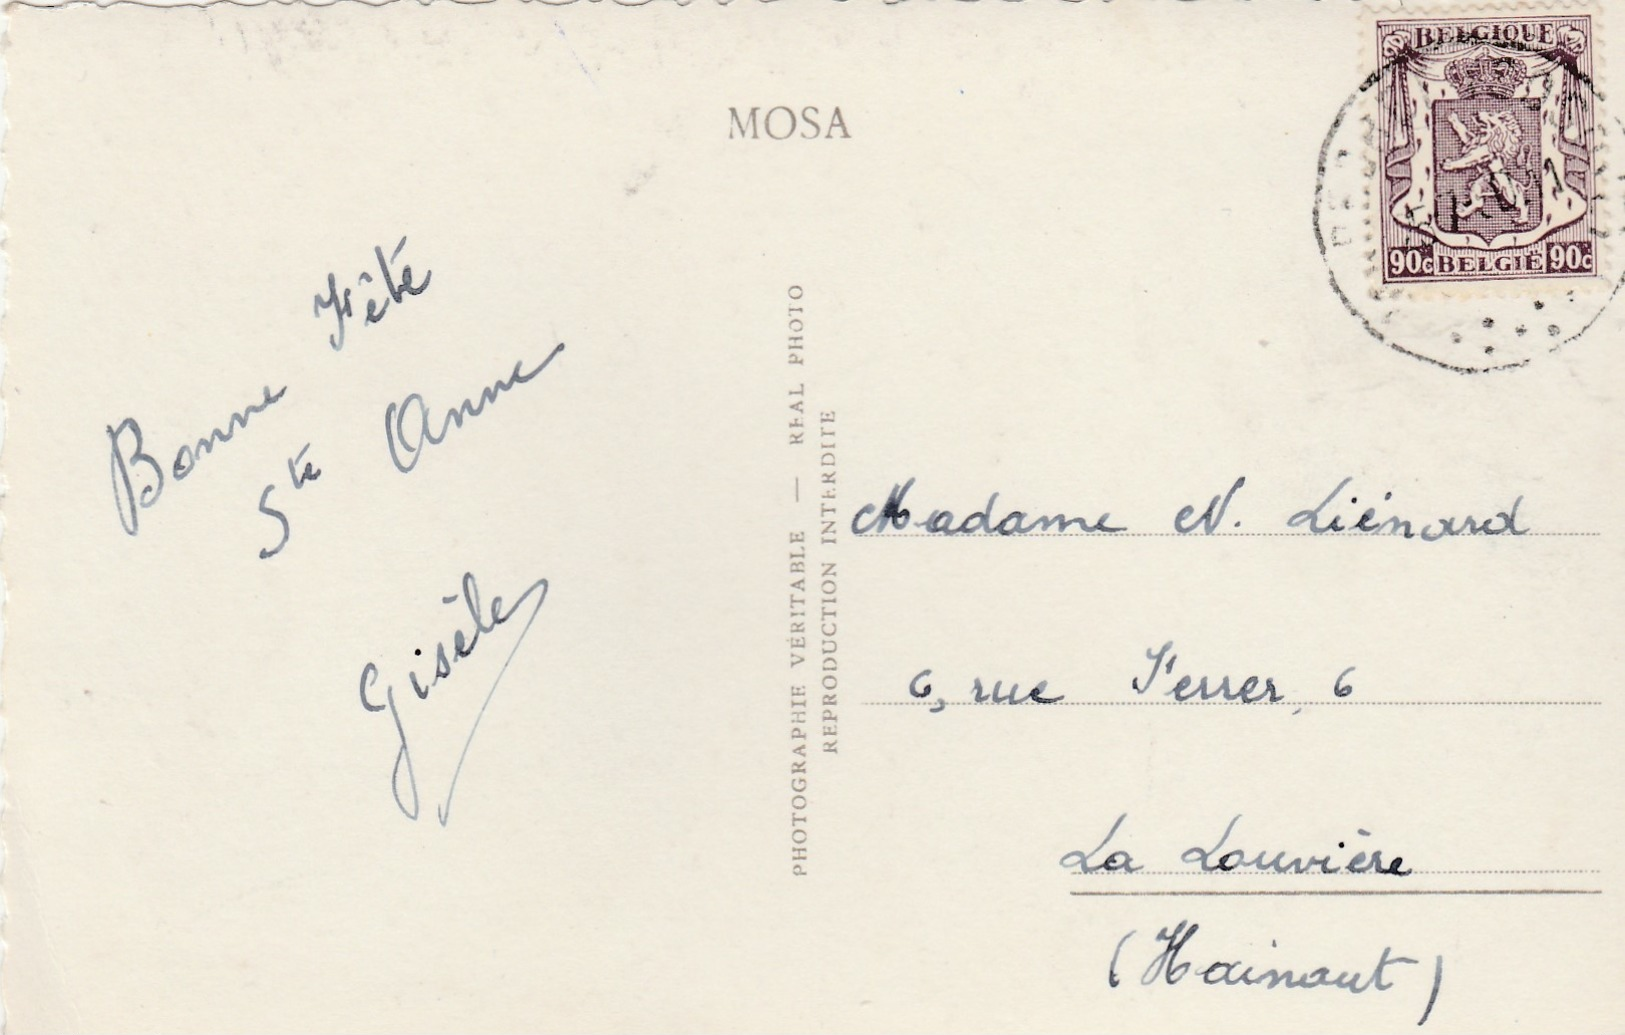 MOSA
BELGIQUE
90c BELGIË 90c
Bonne Fête
Ste Anne
Gisèle
PHOTOGRAPHIE VÉRITABLE — REAL PHOTO
REPRODUCTION INTERDITE
Madame N. Liénard
6, rue Ferrer, 6
La Louvière
(Hainaut)